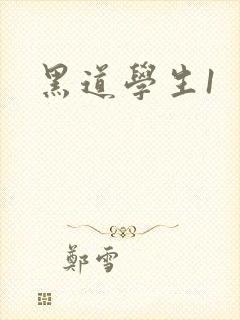 黑道學生1
鄭雪